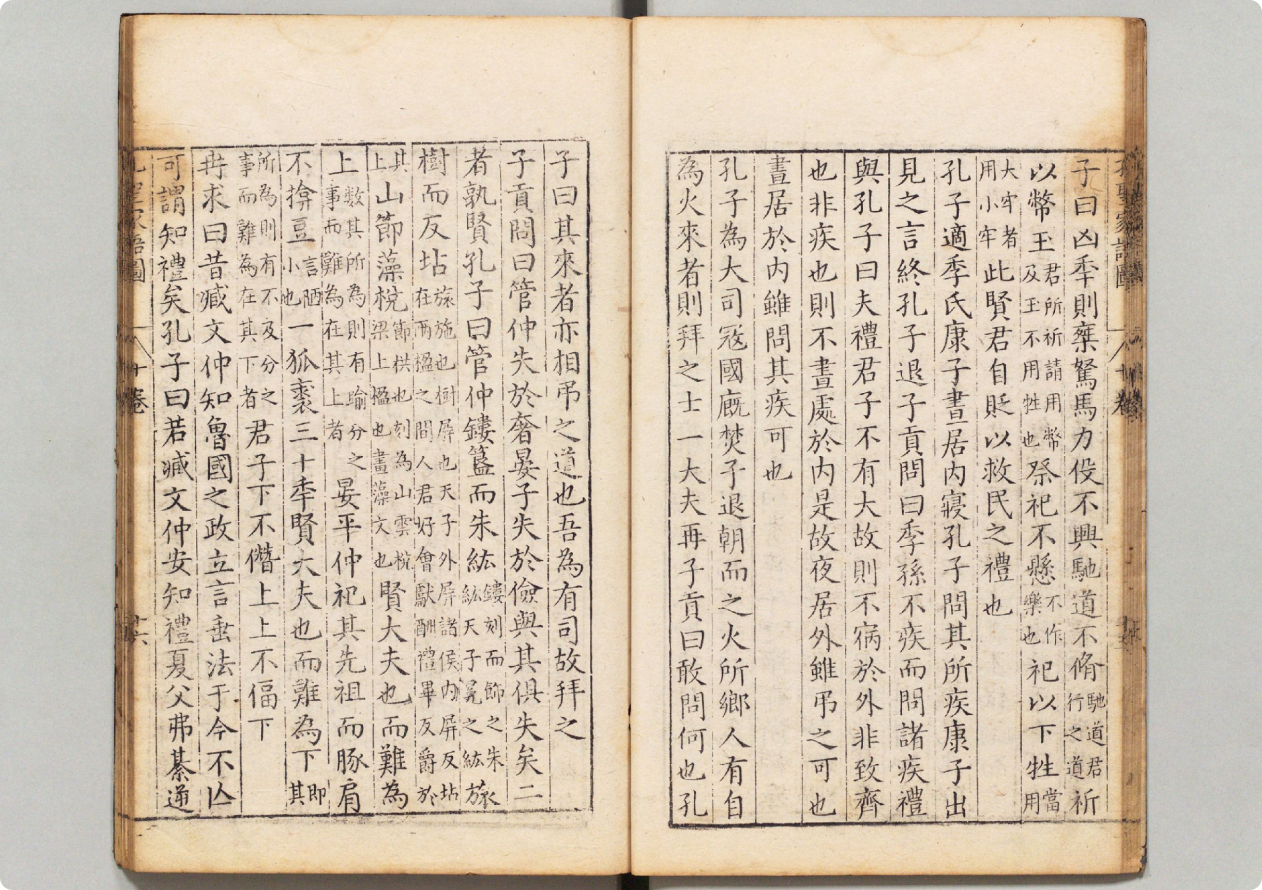 孔聖家語圖 十卷
子曰凶秊則椉駑馬力役不興馳道不脩馳道君行之道祈
以幣玉君所祈請用幣及玉不用牲也祭祀不懸不作樂也祀以下牲當用
大牢者用小牢此賢君自貶以救民之禮也
孔子適季氏康子晝居内寢孔子問其所疾康子出
見之言終孔子退子貢問曰季孫不疾而問諸疾禮
與孔子曰夫禮君子不有大故則不宿於外非致齊
也非疾也則不晝處於内是故夜居外雖弔之可也
晝居於内雖問其疾可也
孔子為大司寇國廐焚子退朝而之火所鄉人有自
為火來者則拜之士一大夫再子貢曰敢問何也孔
子曰其來者亦相弔之道也吾為有司故拜之
子貢問曰管仲失於奢晏子失於儉與其俱失矣二
者孰賢孔子曰管仲鏤簋而朱紘鏤刻而飾之朱紘天子冕之紘旅
樹而反坫旅施也樹屏也天子外屏諸侯内屏反坫在兩楹之間人君好會獻酬禮畢反爵於
其上山節藻梲節栱也刻為山雲梲梁上楹也畫藻文也賢大夫也而難為
上數其所為則有踰分之事而難為在其上者晏平仲祀其先祖而豚肩
不揜豆言陋小也一狐裘三十秊賢大夫也而難為下即其
所為則有不及分之事而難為在其下者君子下不僭上上不偪下
冉求曰昔臧文仲知魯國之政立言垂法于今不亾
可謂知禮矣孔子曰若臧文仲安知禮夏父弗綦逆
孔聖家語圖 十卷 廿六